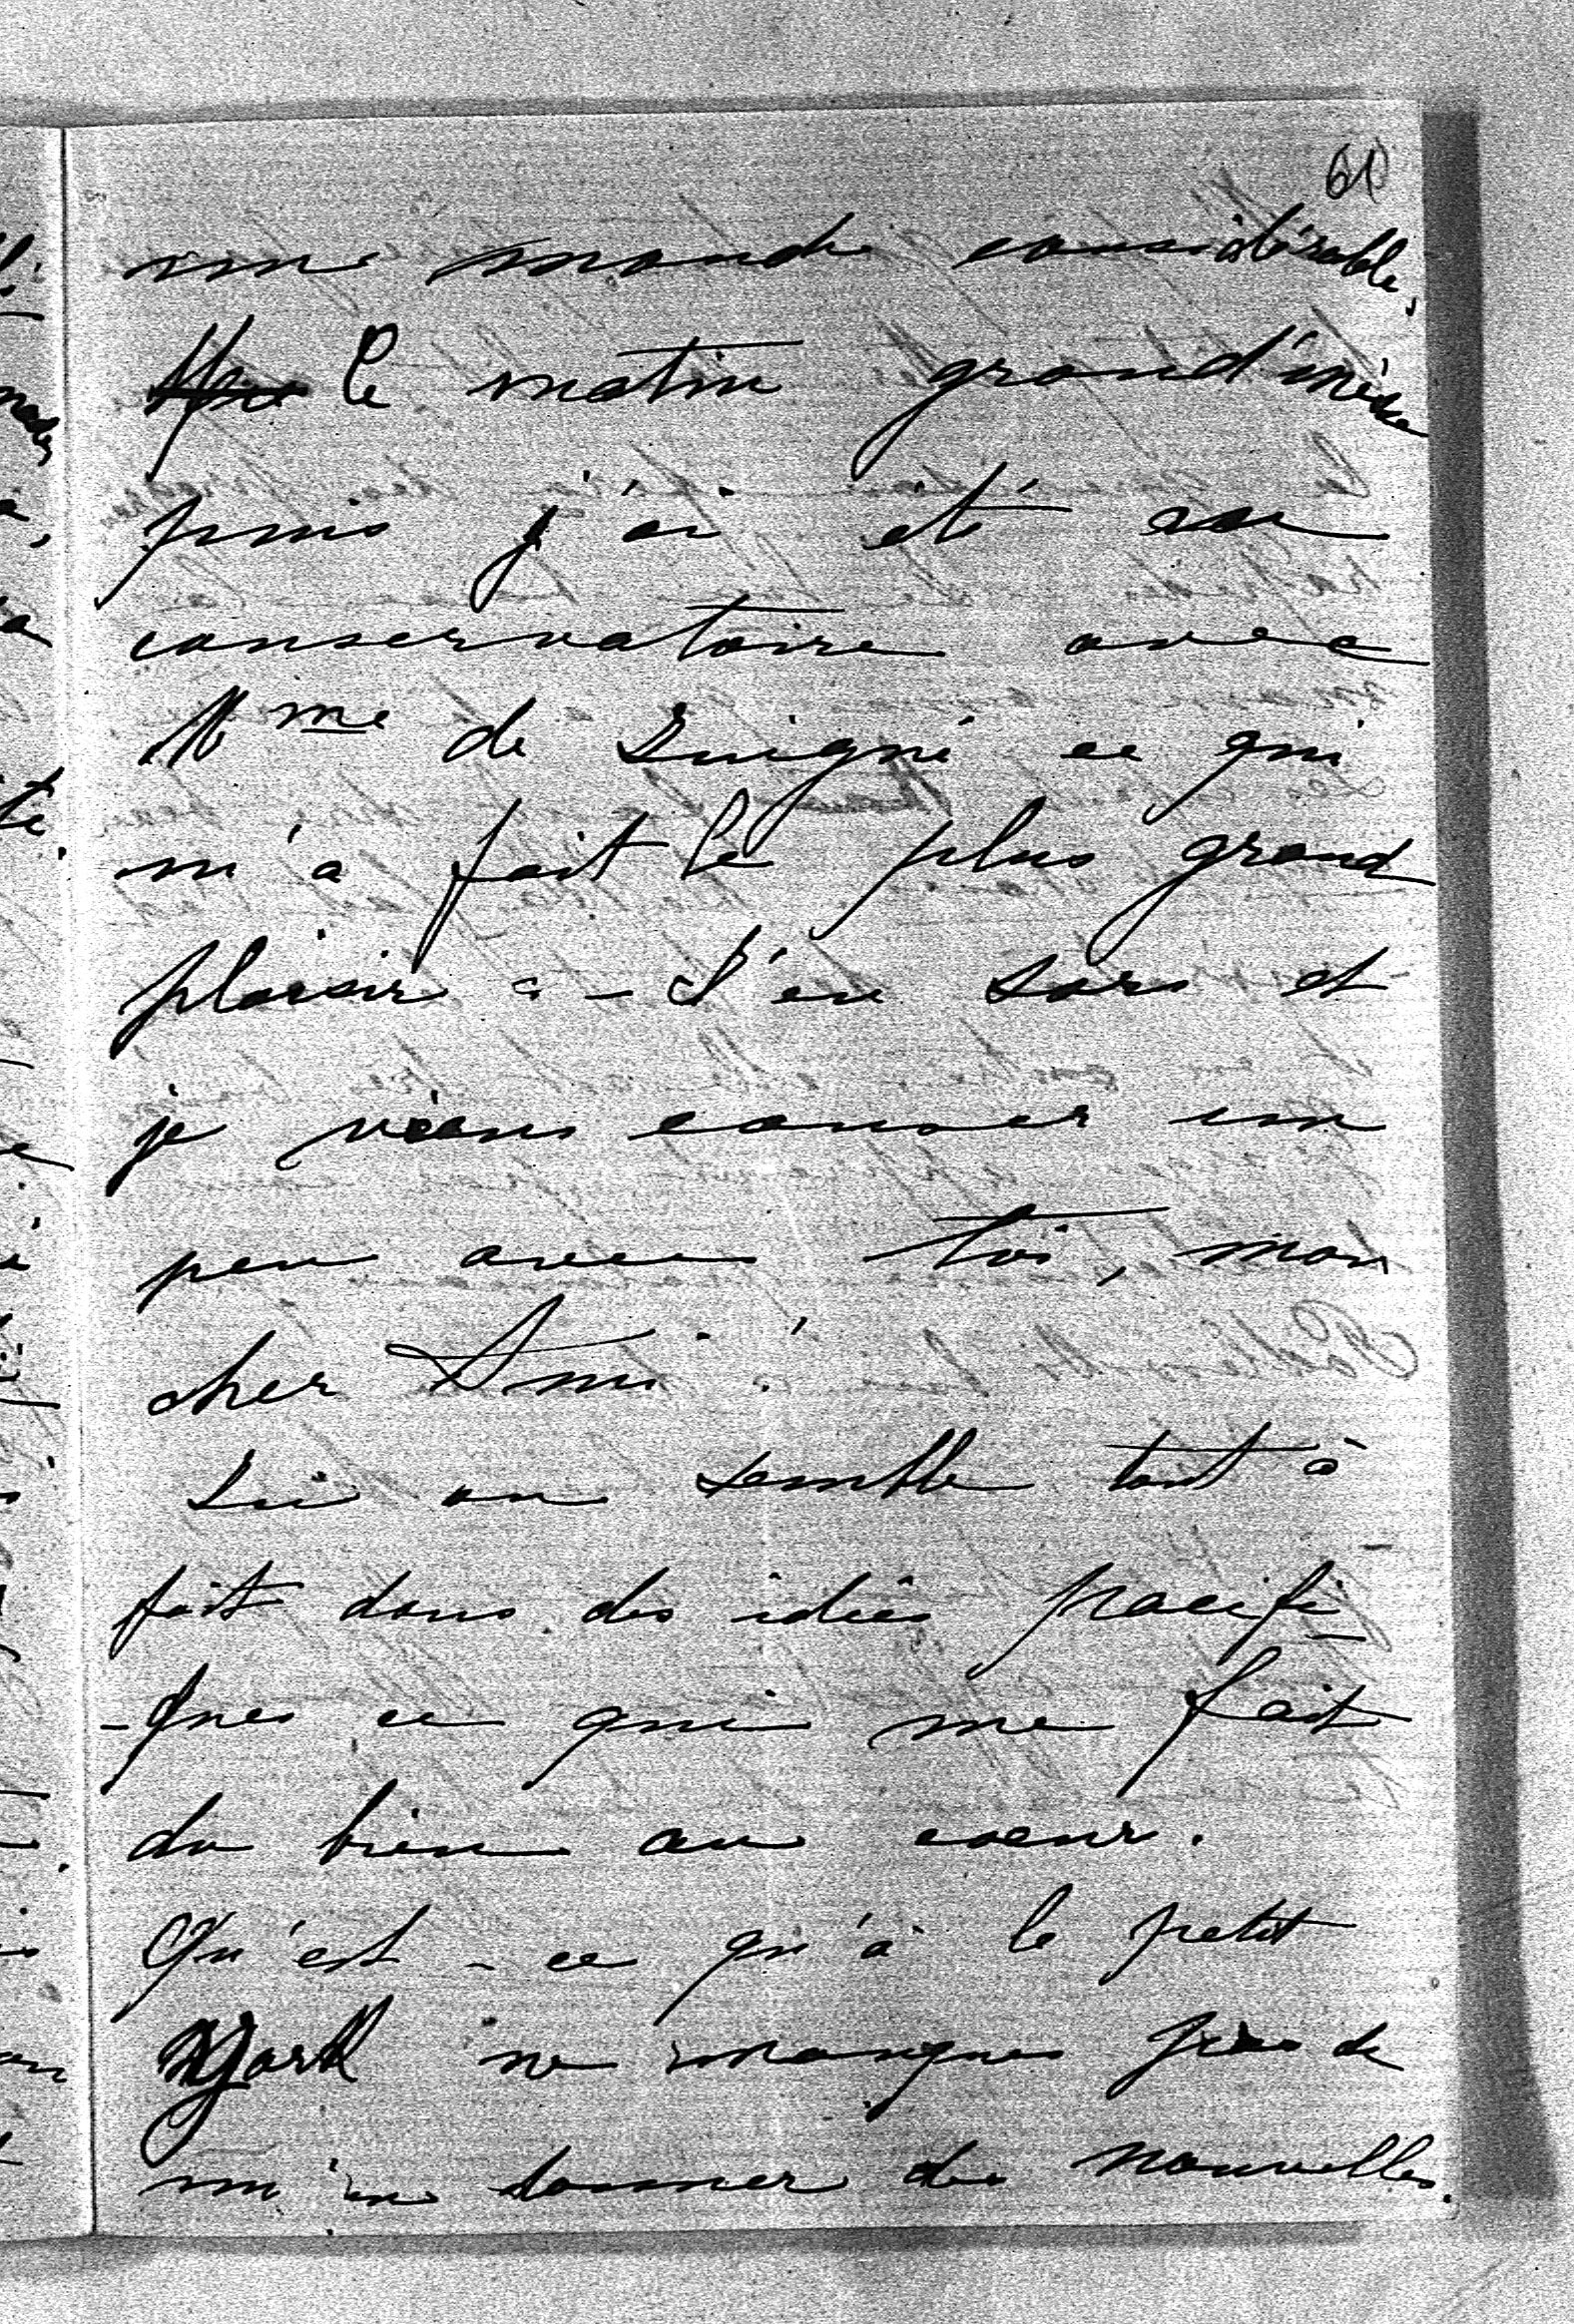 60
une monde considérable,
le matin grand'mère
puis j'ai été au
conservatoire avec
Mme de Luigné ce qui
m'a fait le plus grand
plaisir - J'en sors et
je viens causer un
peu avec toi, mon
cher Ami !
Ici on semble tout à
fait dans des idées pacifi
-ques ce qui me fait
du bien au coeur.
Qu'est-ce qu'à le petit
York ne manques pas de
m'en donner des nouvelles.